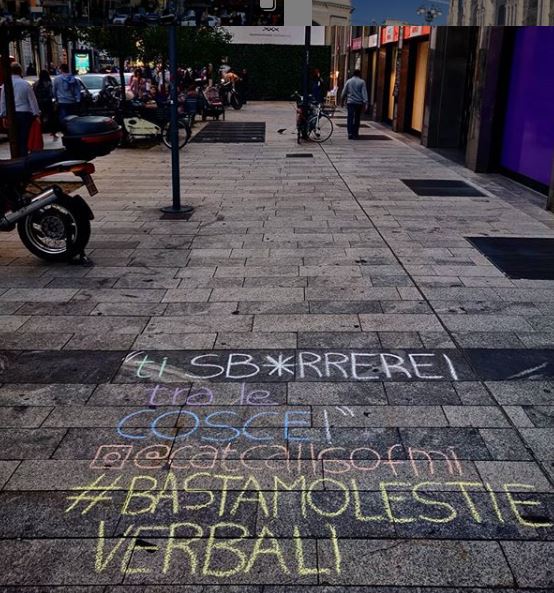 "ti SB*RREREI
tra le
COSCE!"
@catcallsofmi
#BASTAMOLESTIE
VERBALI